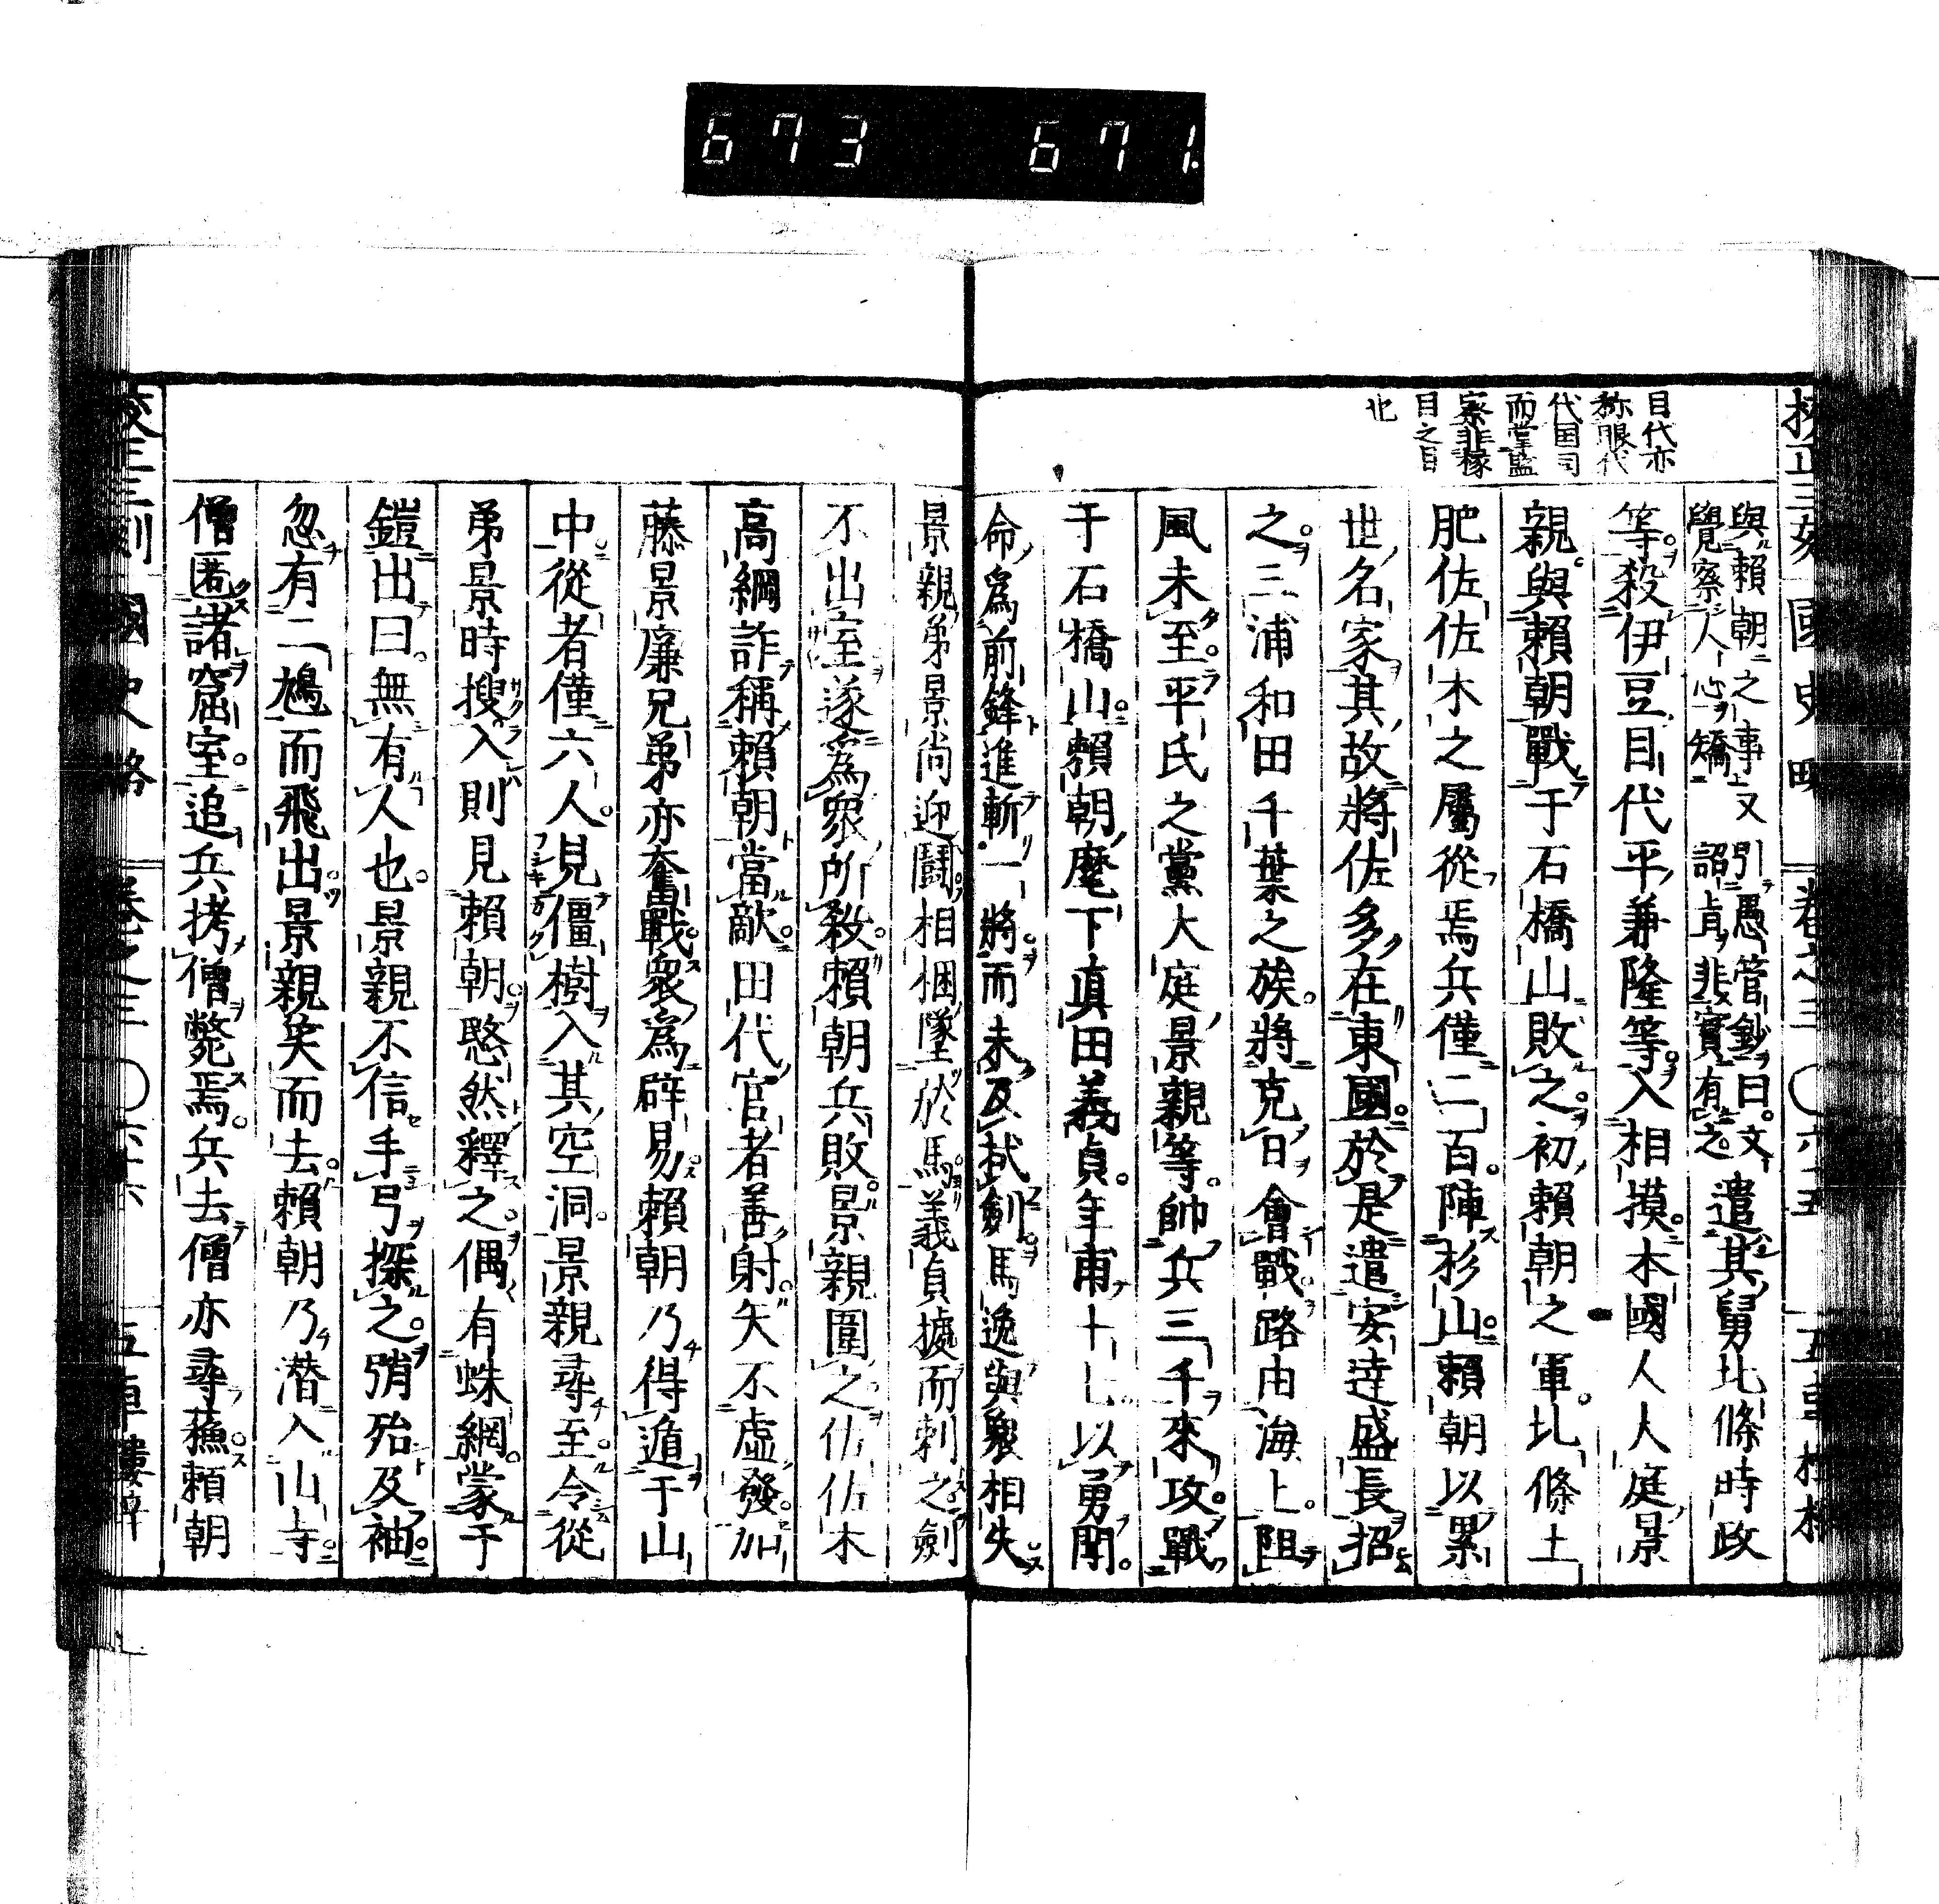 673 671.
目代亦
称眼代
代国司
而掌監
察非糅
目之目
也
與賴朝之事又
覺察人心矯
引愚管鈔曰文
詔肯非實有之
遣其舅北條時政
等殺伊豆目代平兼隆等入相摸木國人大庭景
親與賴朝戰于石橋山敗之初賴朝之軍北條土
肥佐佐木之屬從焉兵僅二百陣杉山賴朝以累
世名家其故將佐多在東國於是遣安達盛長招
之三浦和田千葉之族將克日會戰路由海上阻
風未至平氏之黨大庭景親等帥兵三千來攻戰
于石橋山賴朝麾下眞田義貞年甫十七以勇聞
命爲前鋒進斬一將而未及拭劍馬逸與衆相失
景親弟景尚迎鬪相梱墜於馬義貞據而刺之劍
不出室遂爲衆所殺賴朝兵敗景親圍之佐佐木
高綱詐稱賴朝當敵田代官者善射矢不虛發加
藤景廉兄弟亦奮戰衆爲辟易賴朝乃得遁于山
中從者僅六人見僵樹入其空洞景親尋至令從
弟景時搜入則見賴朝愍然釋之偶有蛛網蒙于
鎧出曰無有人也景親不信手弓探之弰殆及袖
忽有二鳩而飛出景親矣而去賴朝乃潜入山寺
僧匿諸窟室追兵拷僧斃焉兵去僧亦尋蘓賴朝
國史略 卷之三 〇六十六 五車樓梓